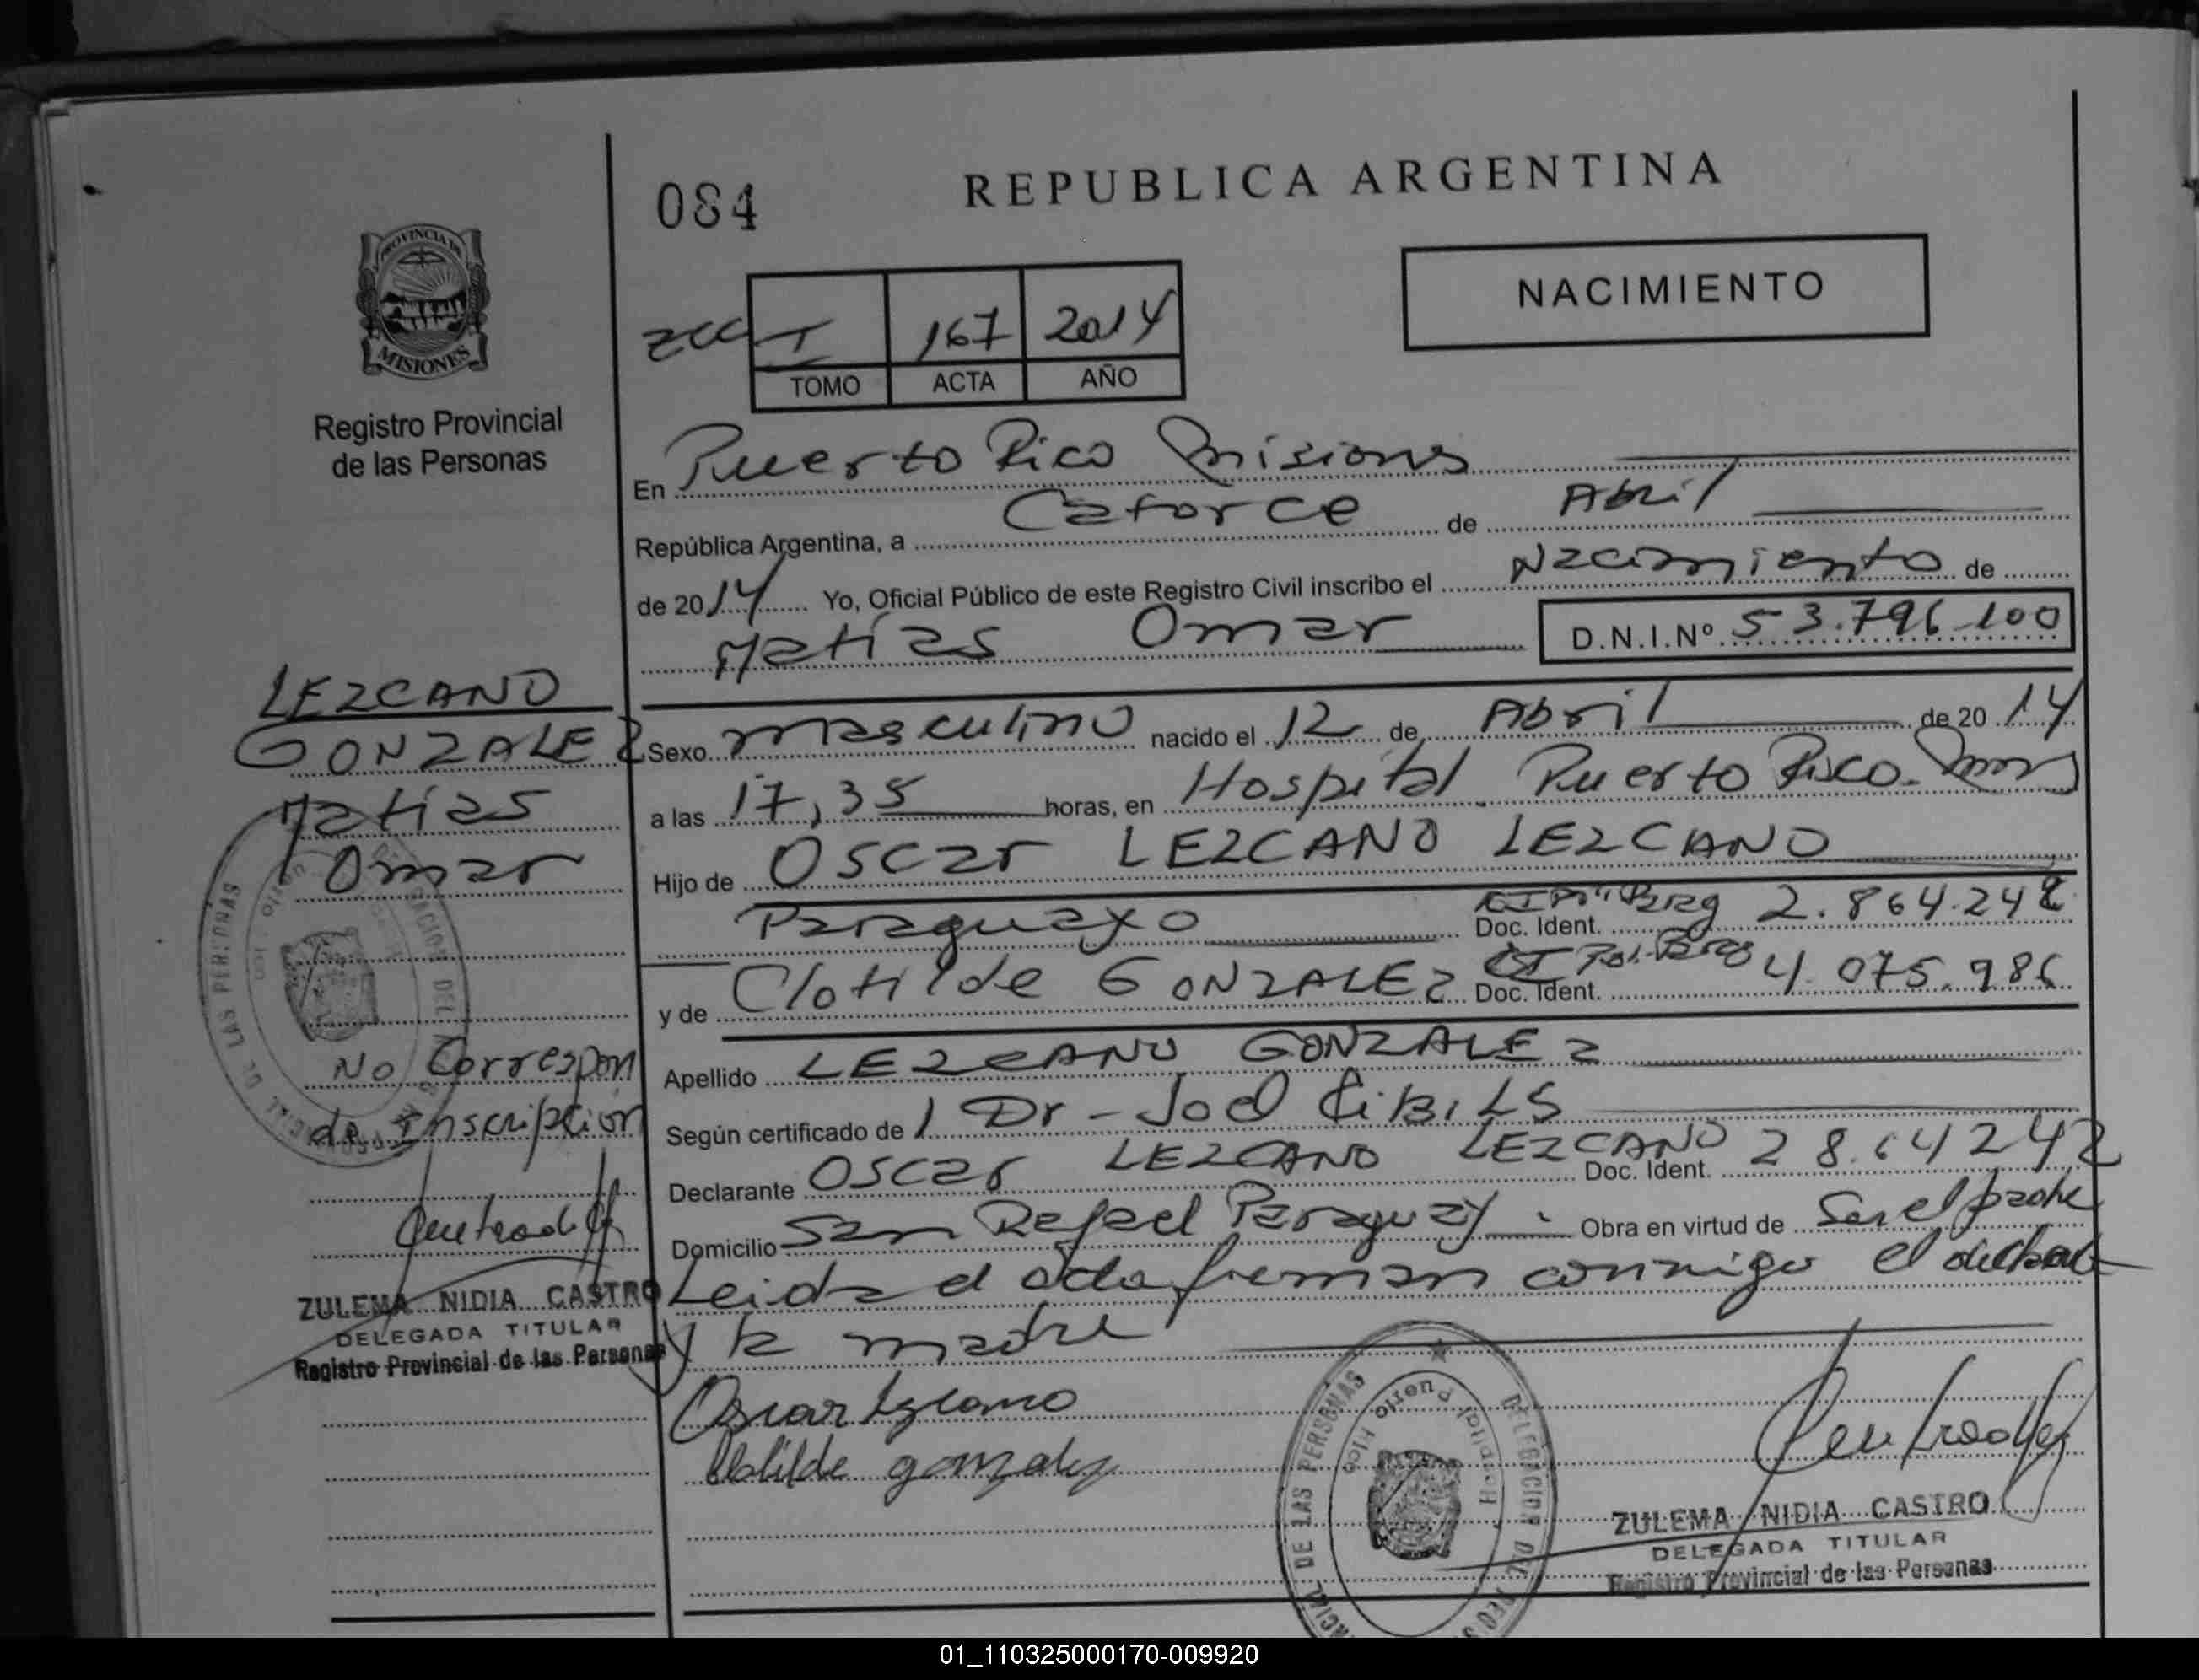 084
REPUBLICA ARGENTINA
PROVINCIA DE
MISIONES
Registro Provincial
de las Personas
NACIMIENTO
I 167 2014
TOMO ACTA AÑO
En Puerto Rico Misiones
República Argentina, a Catorce de Abril
de 2014 Yo, Oficial Público de este Registro Civil inscribo el Nacimiento de
Matías Omar D.N.I.Nº 53.796.100
LEZCANO
GONZALEZ
Matías
Omar
No Correspon
de Inscripción
ZULEMA NIDIA CASTRO
DELEGADA TITULAR
Registro Provincial de las Personas
Sexo masculino nacido el 12 de Abril de 2014
a las 17,35 horas, en Hospital Puerto Rico
Hijo de Oscar LEZCANO LEZCANO
Paraguayo Doc. Ident. 2.864.242
y de Clotilde GONZALEZ Doc. Ident. 4.075.986
Apellido LEZCANO GONZALEZ
Según certificado de Dr - Joel
Declarante Oscar LEZCANO LEZCANO Doc. Ident. 2864242
Domicilio San Rafael Paraguay. Obra en virtud de Ser el padre
Leida el acta firman conmigo el
y la madre
Oscar Lezcano
Clotilde gonzalez
DELEGACION DEL
DE LAS PERSONAS
Hospital Puerto Rico
ZULEMA NIDIA CASTRO
DELEGADA TITULAR
Registro Provincial de las Personas
01_110325000170-009920